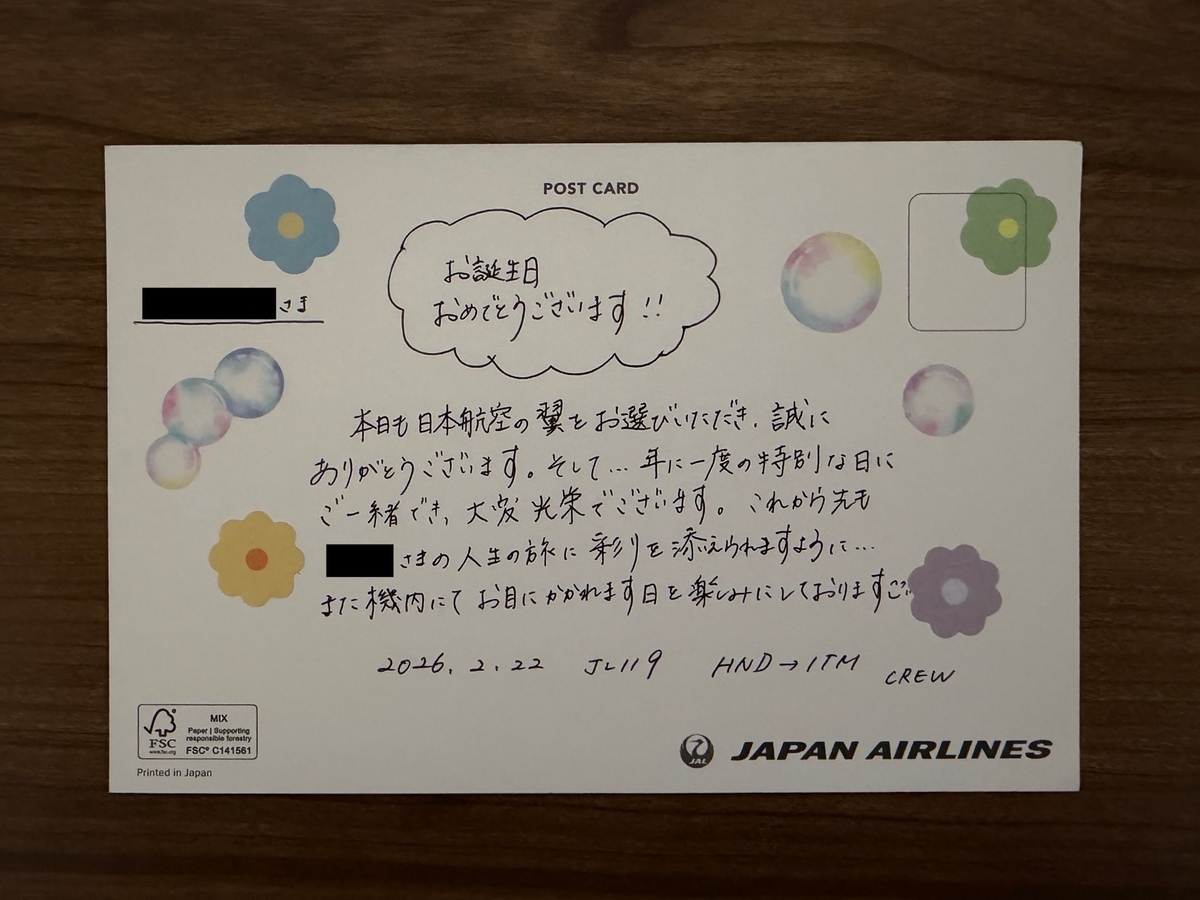 POST CARD
お誕生日
おめでとうございます!!
さま
本日も日本航空の翼をお選びいただき、誠に
ありがとうございます。そして…年に一度の特別な日に
ご一緒でき、大変光栄でございます。これから先も
さまの人生の旅に彩りを添えられますように…
また機内にてお目にかかれます日を楽しみにしております
2026.2.22 JL119 HND→ITM CREW
FSC
www.fsc.org
MIX
Paper | Supporting
responsible forestry
FSC® C141561
Printed in Japan
JAL JAPAN AIRLINES